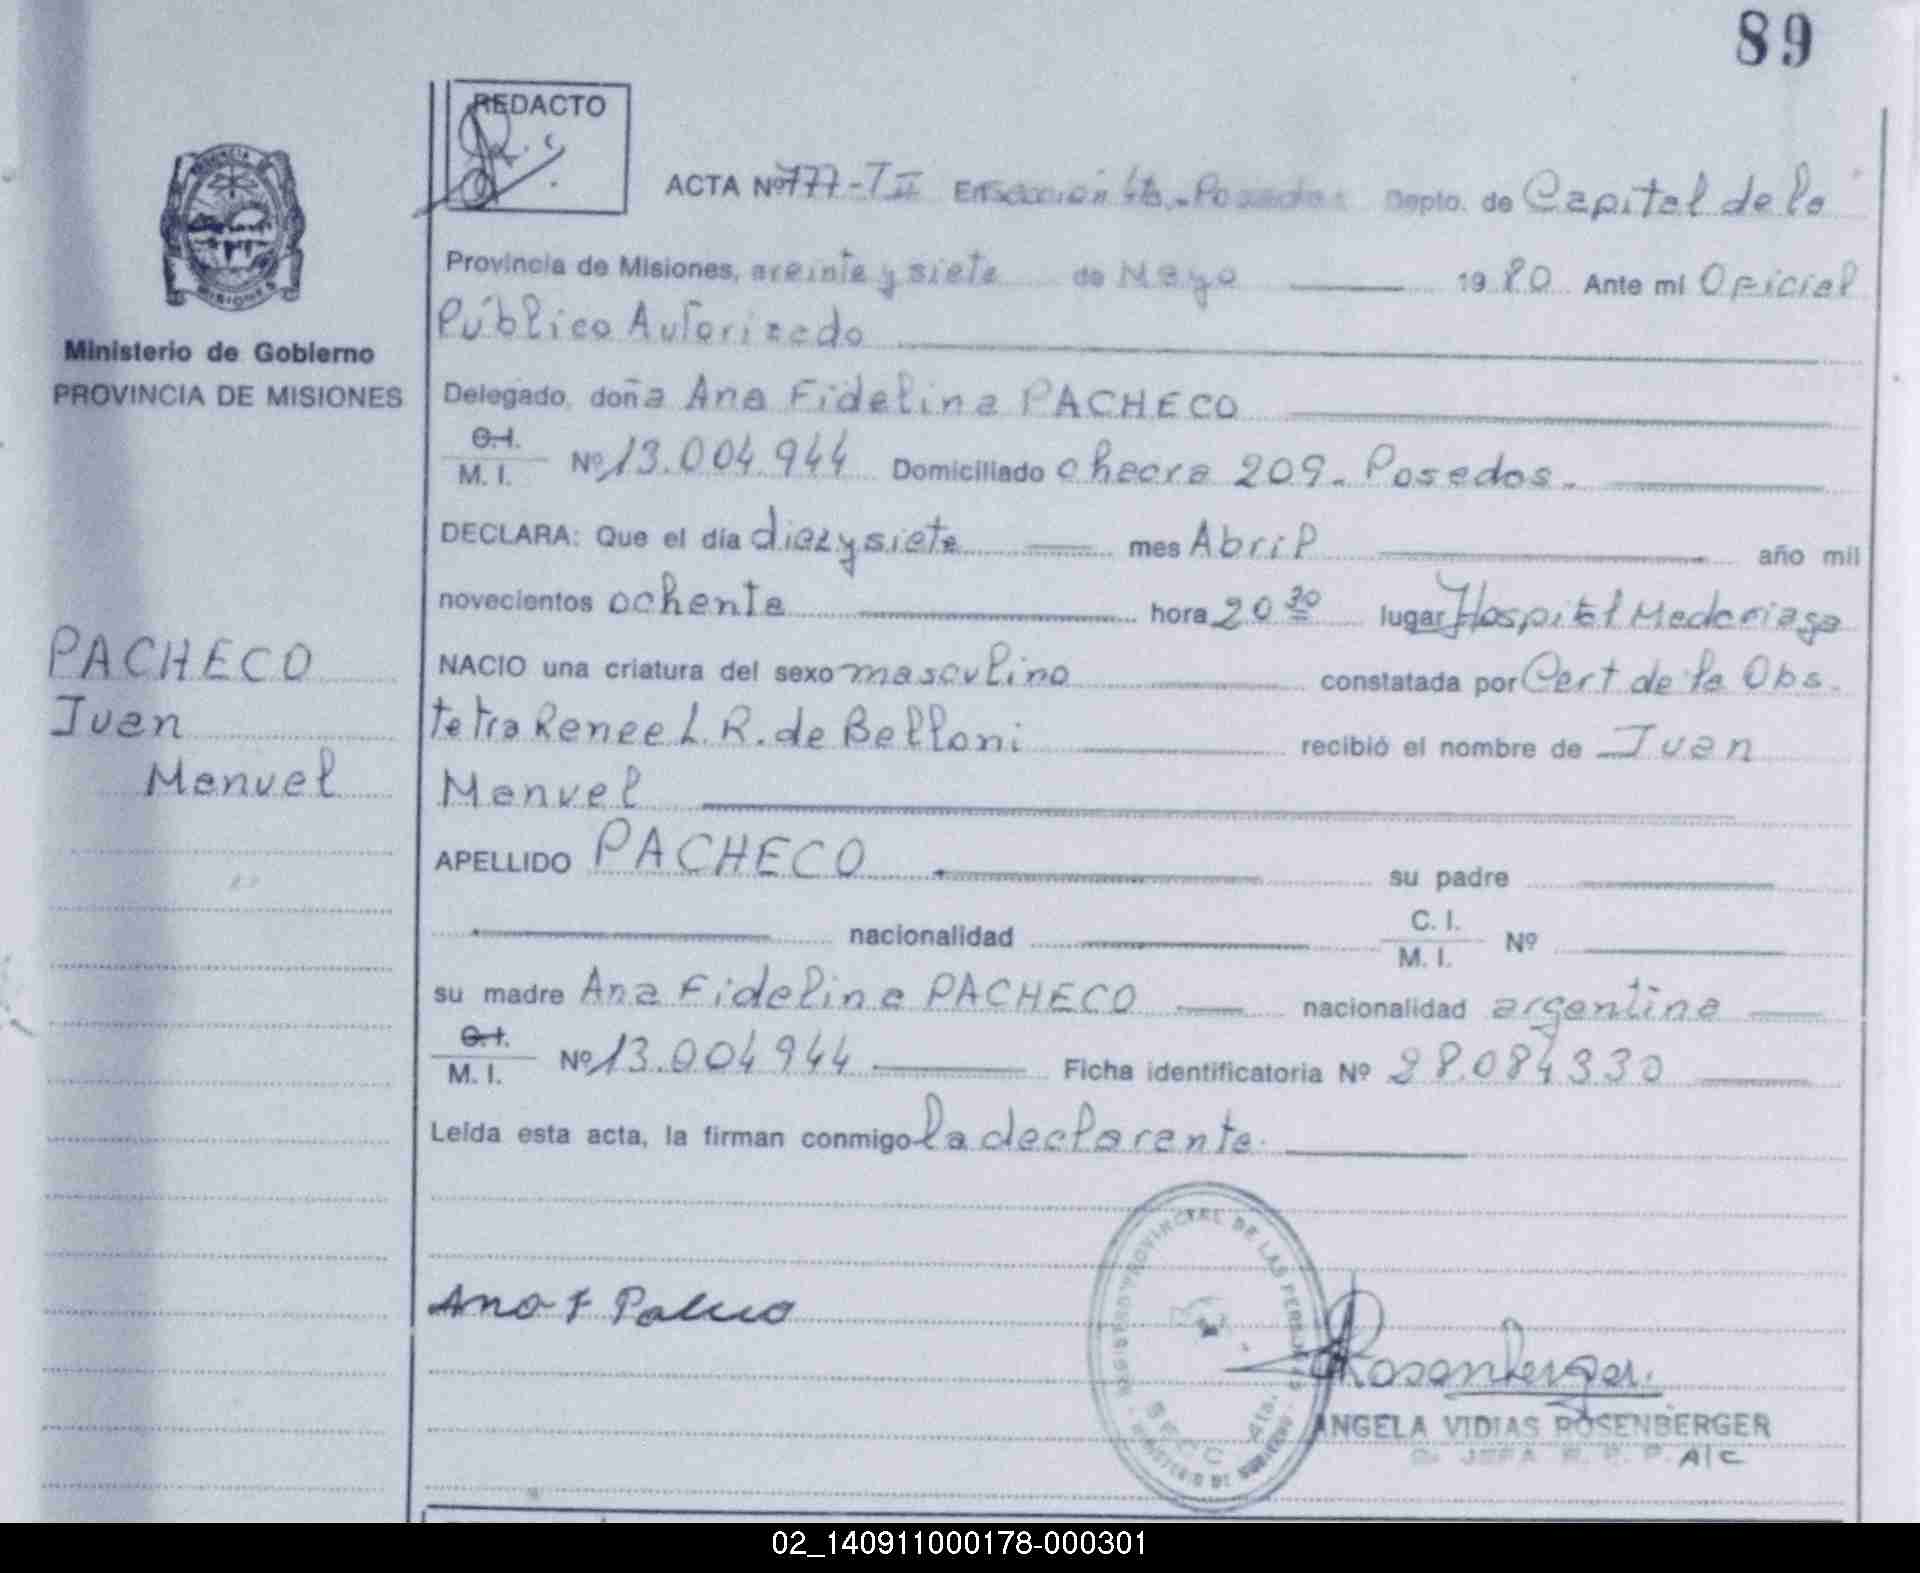 89
REDACTO
ACTA Nº 777-T II En Sección 4ta. Posadas Depto. de Capital de la
Provincia de Misiones, a veinte y siete de Mayo 1980 Ante mi Oficial
Público Autorizado
Ministerio de Gobierno
PROVINCIA DE MISIONES
Delegado, doña Ana Fidelina PACHECO
C.I. M. I. Nº 13.004.944 Domiciliado Chacra 209 - Posadas.
DECLARA: Que el día diez y siete mes Abril año mil
novecientos ochenta hora 20 30 lugar Hospital Madariaga
PACHECO
Juan
Manuel
NACIO una criatura del sexo masculino constatada por Cert de la Obs.
tetra Renee L. R. de Belloni recibió el nombre de Juan
Manuel
APELLIDO PACHECO su padre
nacionalidad C. I. M. I. Nº
su madre Ana Fidelina PACHECO nacionalidad argentina
C.I. M. I. Nº 13.004.944 Ficha identificatoria Nº 28.084.330
Leída esta acta, la firman conmigo la declarante.
Ana F Pacheco
REGISTRO PROVINCIAL DE LAS PERSONAS
SECC 4ta.
MINISTERIO DE GOBIERNO
Rosenberger.
ANGELA VIDIAS ROSENBERGER
JEFA R. P. P. A/C
02_140911000178-000301